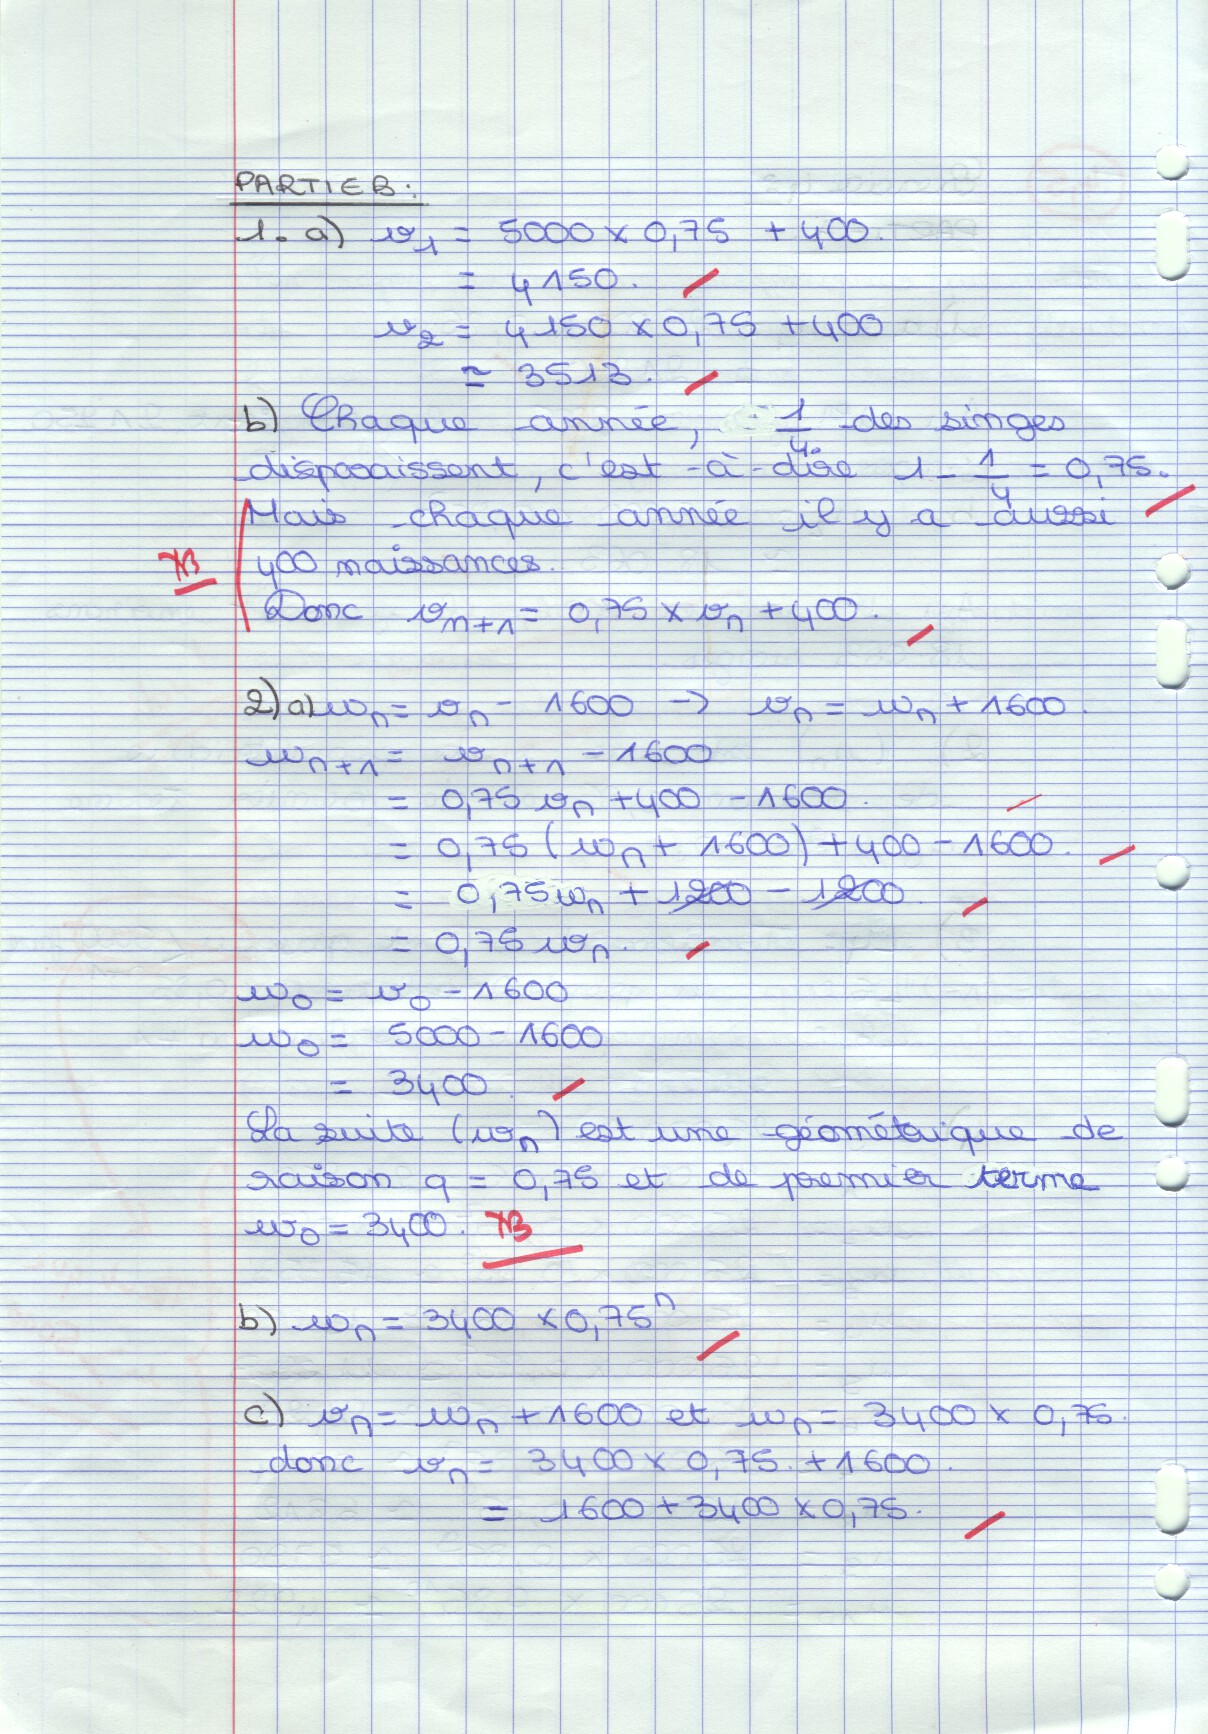 PARTIE B :
1. a) v₁ = 5000 × 0,75 + 400.
= 4150.
v₂ = 4150 × 0,75 + 400
≃ 3513.
b) Chaque année, 1/4 des singes
disparaissent, c'est-à-dire 1 - 1/4 = 0,75.
Mais chaque année il y a aussi
TB
400 naissances.
Donc vₙ₊₁ = 0,75 × vₙ + 400.
2) a) wₙ = vₙ - 1600 → vₙ = wₙ + 1600.
wₙ₊₁ = vₙ₊₁ - 1600
= 0,75 vₙ + 400 - 1600.
= 0,75 (wₙ + 1600) + 400 - 1600.
= 0,75 wₙ + 1200 - 1200.
= 0,75 wₙ.
w₀ = v₀ - 1600
w₀ = 5000 - 1600
= 3400.
La suite (wₙ) est une géométrique de
raison q = 0,75 et de premier terme
w₀ = 3400. TB
b) wₙ = 3400 × 0,75ⁿ
c) vₙ = wₙ + 1600 et wₙ = 3400 × 0,75.
donc vₙ = 3400 × 0,75. + 1600.
= 1600 + 3400 × 0,75.